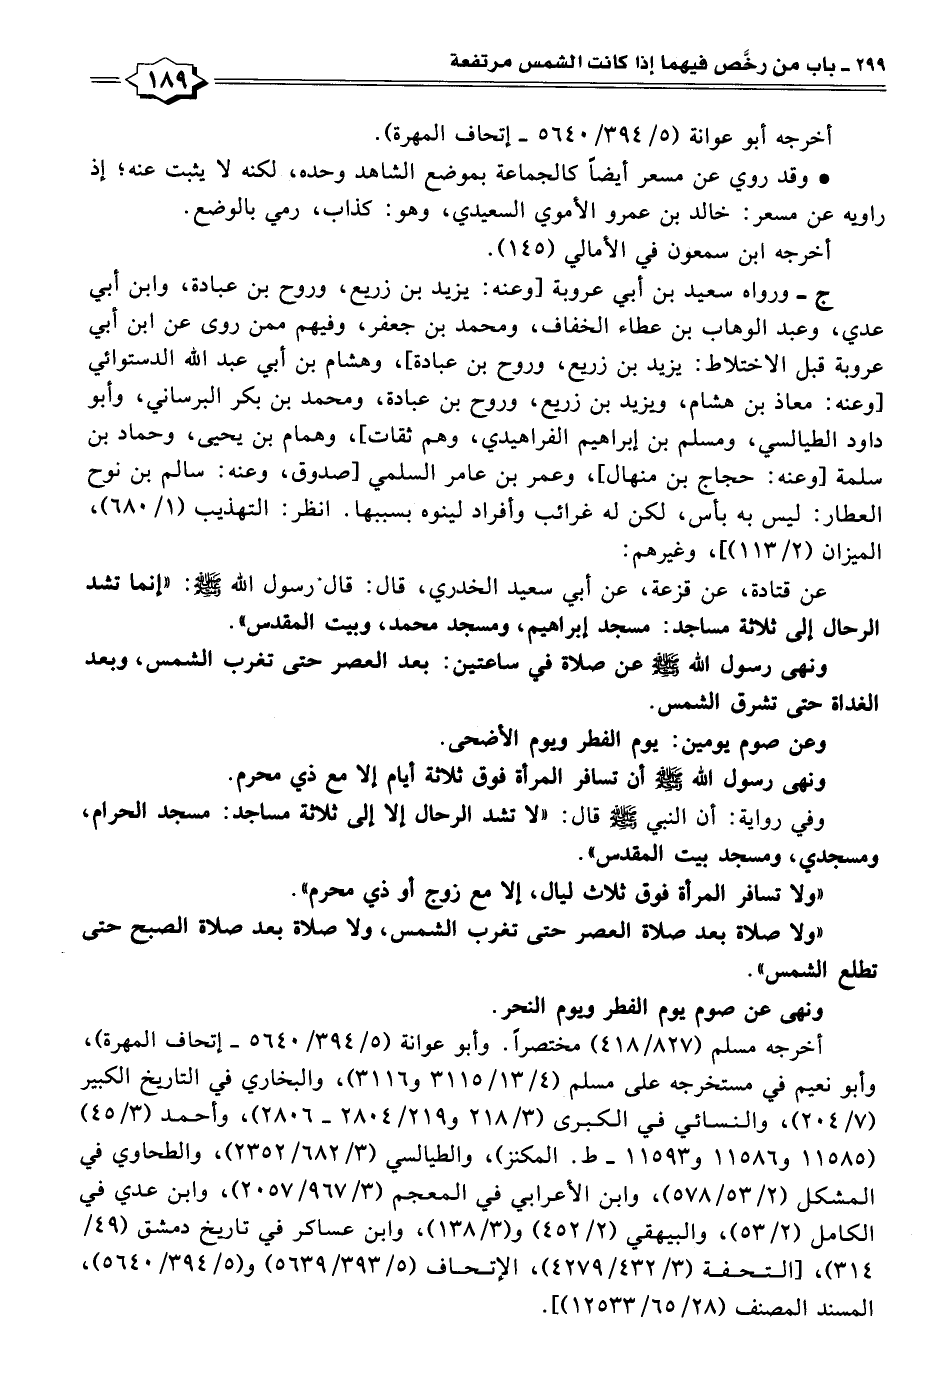 ٢٩٩ ـ باب من رخَّص فيهما إذا كانت الشمس مرتفعة
١٨٩
أخرجه أبو عوانة (٥/ ٣٩٤/ ٥٦٤٠ ـ إتحاف المهرة).
• وقد روي عن مسعر أيضاً كالجماعة بموضع الشاهد وحده، لكنه لا يثبت عنه؛ إذ
راويه عن مسعر: خالد بن عمرو الأموي السعيدي، وهو: كذاب، رمي بالوضع.
أخرجه ابن سمعون في الأمالي (١٤٥).
ج ـ ورواه سعيد بن أبي عروبة [وعنه: يزيد بن زريع، وروح بن عبادة، وابن أبي
عدي، وعبد الوهاب بن عطاء الخفاف، ومحمد بن جعفر، وفيهم ممن روى عن ابن أبي
عروبة قبل الاختلاط: يزيد بن زريع، وروح بن عبادة]، وهشام بن أبي عبد الله الدستوائي
[وعنه: معاذ بن هشام، ويزيد بن زريع، وروح بن عبادة، ومحمد بن بكر البرساني، وأبو
داود الطيالسي، ومسلم بن إبراهيم الفراهيدي، وهم ثقات]، وهمام بن يحيى، وحماد بن
سلمة [وعنه: حجاج بن منهال]، وعمر بن عامر السلمي [صدوق، وعنه: سالم بن نوح
العطار: ليس به بأس، لكن له غرائب وأفراد لينوه بسببها. انظر: التهذيب (١/ ٦٨٠)،
الميزان (٢/ ١١٣)]، وغيرهم:
عن قتادة، عن قزعة، عن أبي سعيد الخدري، قال: قال رسول الله ﷺ: «إنما تشد
الرحال إلى ثلاثة مساجد: مسجد إبراهيم، ومسجد محمد، وبيت المقدس».
ونهى رسول الله ﷺ عن صلاة في ساعتين: بعد العصر حتى تغرب الشمس، وبعد
الغداة حتى تشرق الشمس.
وعن صوم يومين: يوم الفطر ويوم الأضحى.
ونهى رسول الله ﷺ أن تسافر المرأة فوق ثلاثة أيام إلا مع ذي محرم.
وفي رواية: أن النبي ﷺ قال: «لا تشد الرحال إلا إلى ثلاثة مساجد: مسجد الحرام،
ومسجدي، ومسجد بيت المقدس».
«ولا تسافر المرأة فوق ثلاث ليال، إلا مع زوج أو ذي محرم».
«ولا صلاة بعد صلاة العصر حتى تغرب الشمس، ولا صلاة بعد صلاة الصبح حتى
تطلع الشمس».
ونهى عن صوم يوم الفطر ويوم النحر.
أخرجه مسلم (٤١٨/٨٢٧) مختصراً. وأبو عوانة (٥/ ٣٩٤/ ٥٦٤٠ ـ إتحاف المهرة)،
وأبو نعيم في مستخرجه على مسلم (٤/ ١٣/ ٣١١٥ و٣١١٦)، والبخاري في التاريخ الكبير
(٧/ ٢٠٤)، والنسائي في الكبرى (٣/ ٢١٨ و٢١٩/ ٢٨٠٤ ـ ٢٨٠٦)، وأحمد (٣/ ٤٥)
(١١٥٨٥ و١١٥٨٦ و١١٥٩٣ ـ ط. المكنز)، والطيالسي (٣/ ٦٨٢/ ٢٣٥٢)، والطحاوي في
المشكل (٢/ ٥٣/ ٥٧٨)، وابن الأعرابي في المعجم (٣/ ٩٦٧/ ٢٠٥٧)، وابن عدي في
الكامل (٢/ ٥٣)، والبيهقي (٢/ ٤٥٢) و(٣/ ١٣٨)، وابن عساكر في تاريخ دمشق (٤٩/
٣١٤)، [التحفة (٣/ ٤٣٢/ ٤٢٧٩)، الإتحاف (٥/ ٣٩٣/ ٥٦٣٩) و(٥/ ٣٩٤/ ٥٦٤٠)،
المسند المصنف (٢٨/ ٦٥/ ١٢٥٣٣)].